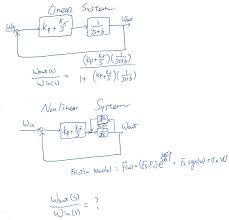 Linear System
Win
Kp+Ki/S
1/(Js+b)
Wout
Wout(s)/Win(s) = (Kp+Ki/S)(1/(Js+b)) / 1+(Kp+Ki/S)(1/(Js+b))
Nonlinear System
Win
Kp+Ki/S
Wout
Friction Model:
Wout(s)/Win(s) = ?